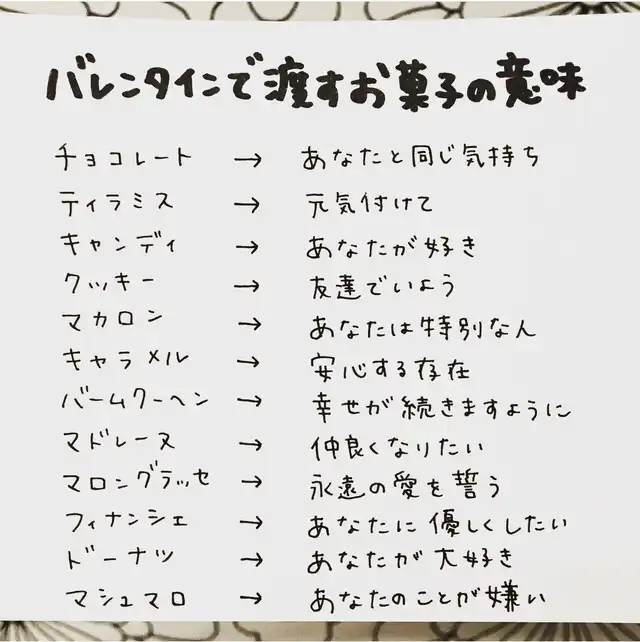 バレンタインで渡すお菓子の意味
チョコレート → あなたと同じ気持ち
ティラミス → 元気付けて
キャンディ → あなたが好き
クッキー → 友達でいよう
マカロン → あなたは特別な人
キャラメル → 安心する存在
バームクーヘン → 幸せが続きますように
マドレーヌ → 仲良くなりたい
マロングラッセ → 永遠の愛を誓う
フィナンシェ → あなたに優しくしたい
ドーナツ → あなたが大好き
マシュマロ → あなたのことが嫌い